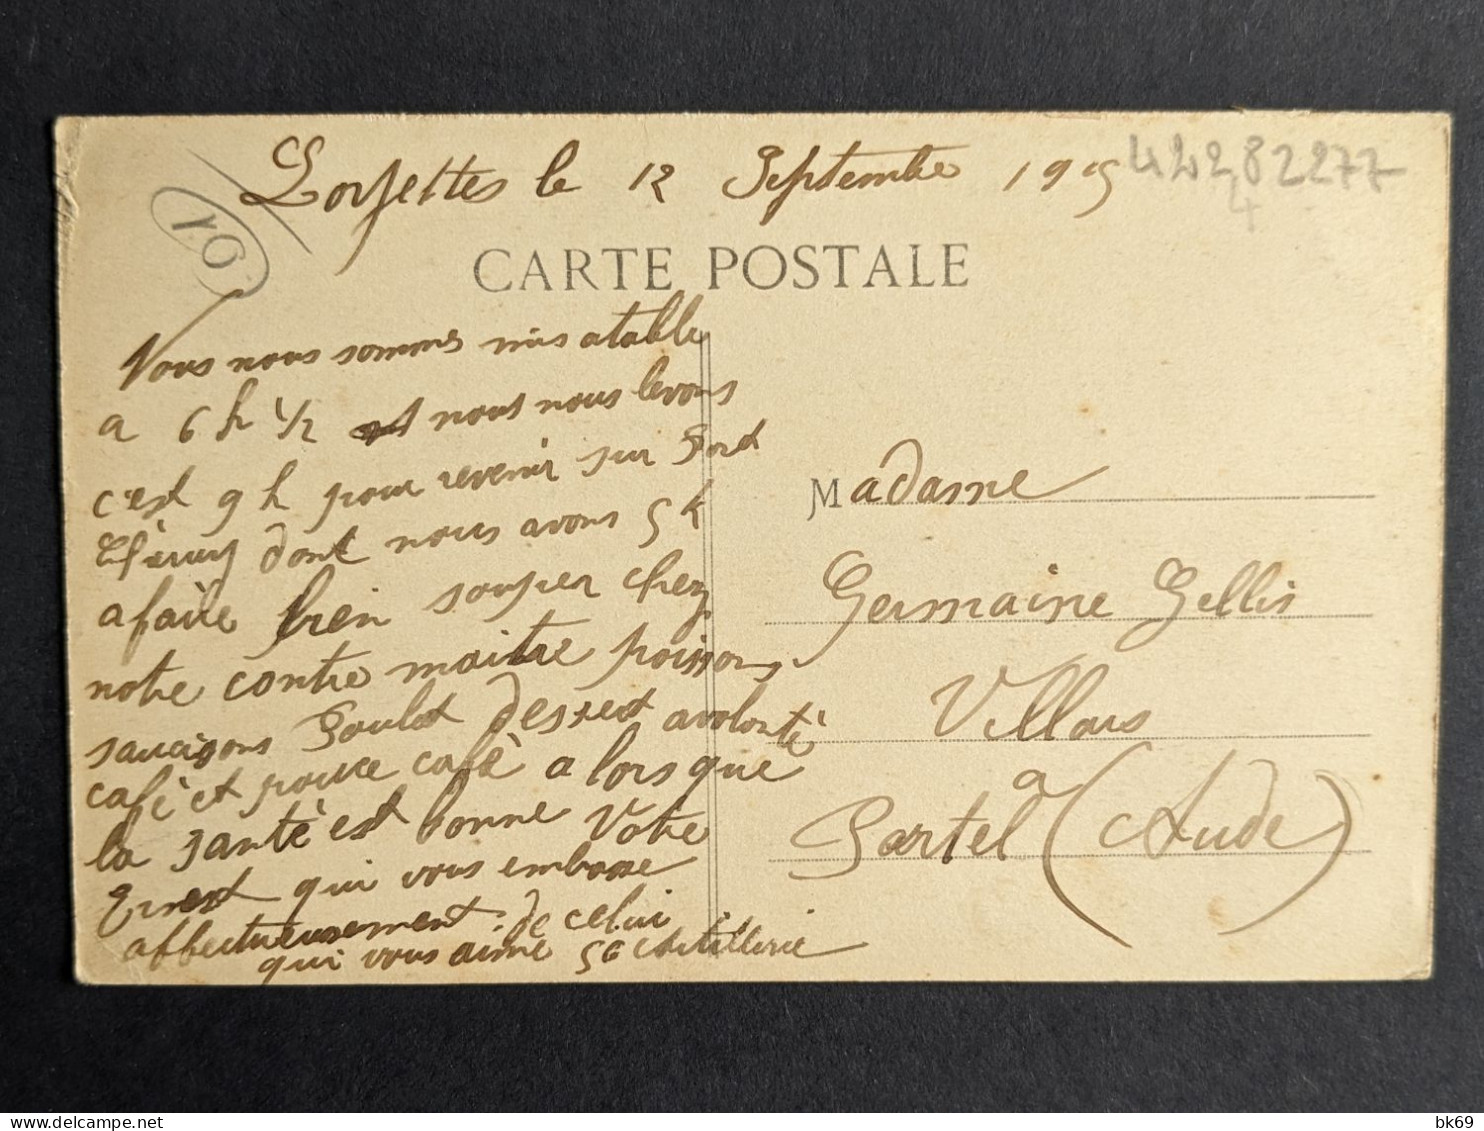 le 12 Septembre 1915
44282277
4
10
CARTE POSTALE
Nous nous sommes mis atable
a 6 h 1/2 et nous nous levons
c'est 9 h pour revenir sur Pord
dont nous avons 5 k
afaire bien souper chez
notre contre maitre poissons
saucisons Poulet dessert avolonté
café et pouce café a lorsque
la santé est bonne Votre
Ernest qui vous embrasse
affectueusement de celui
qui vous aime 56 Artillerie
Madame
Germaine Gellis
Villars
a
Portel (Aude)
delcampe.net
bk69